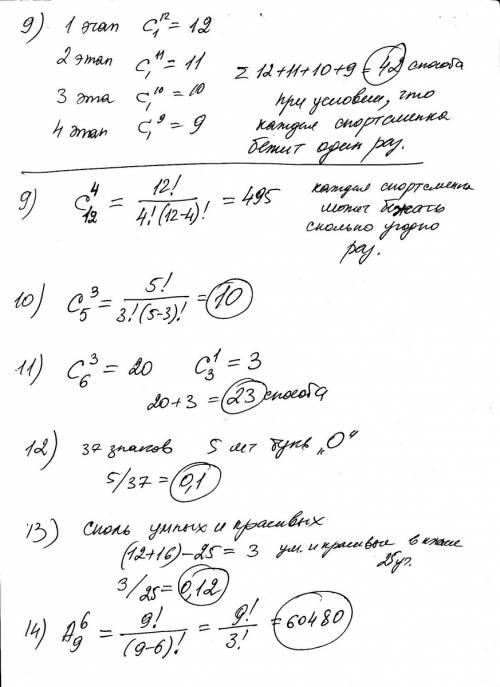 9) 1 этап C₁¹² = 12
2 этап C₁¹¹ = 11
3 эта C₁¹⁰ = 10
4 этап C₁⁹ = 9
Σ 12+11+10+9 = 42 способа
при условии, что
каждая спортсменка
бежит один раз.
9) C₁₂⁴ = 12! / 4!(12-4)! = 495
каждая спортсменка
может бежать
сколько угодно
раз.
10) C₅³ = 5! / 3!(5-3)! = 10
11) C₆³ = 20 C₃¹ = 3
20+3 = 23 способа
12) 37 знаков 5 букв „О“
5/37 = 0,1
13) Сколь умных и красивых
(12+16)-25 = 3 ум. и красивые в классе
25 уч.
3/25 = 0,12
14) A₉⁶ = 9! / (9-6)! = 9! / 3! = 60480